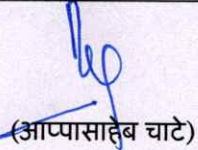 (आप्पासाहेब चाटे)